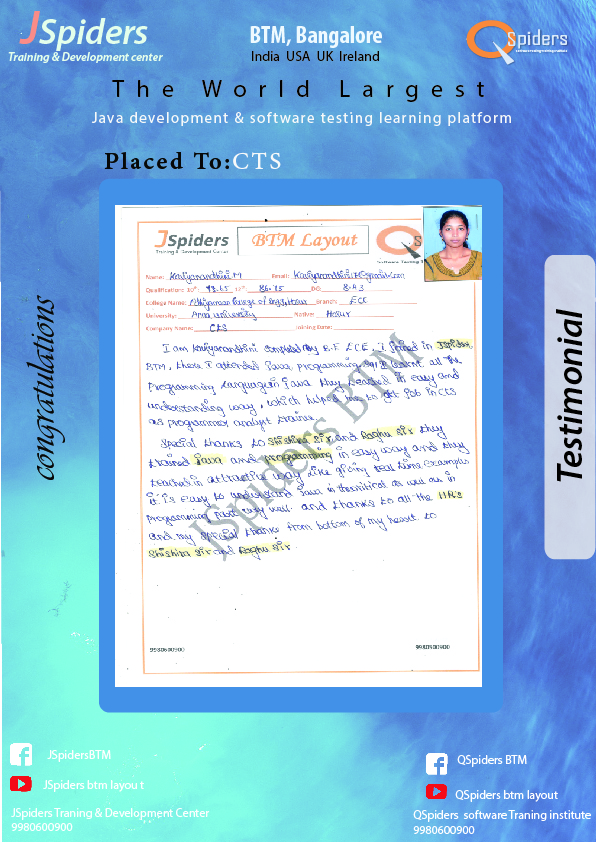 JSpiders
Training & Development center
BTM, Bangalore
India USA UK Ireland
QSpiders
The World Largest
Java development & software testing learning platform
Placed To:CTS
congratulations
Testimonial
JSpiders
Training & Development Center
BTM Layout
Name: Kaviyanandhini.M Email:
Qualification: 10th 93.65 12th 86.75 DG: 8.43
College Name: Adhiyamaan College of Engg, Hosur Branch: ECE
University: Anna University Native: Hosur
Company Name: CTS Joining Date:
I am Kaviyanandhini completed my B.E ECE. I joined in JSpiders
BTM, there I attended Java Programming. I learnt all the
Programming Language in Java they teached in easy and
understanding way, which helped me to get job in CTS
as programmer analyst trainee.
Special thanks to Shishira Sir and Raghu Sir they
trained Java and programming in easy way and they
teached in attractive way like giving real time examples
it is easy to understand Java in theoritical as well as in
Programming most very well. and thanks to all the HR's
and my special thanks from bottom of my heart to
Shishira Sir and Raghu Sir.
JSpiders BTM
9980600900
9980600900
JSpidersBTM
JSpiders btm layou t
JSpiders Traning & Development Center
9980600900
QSpiders BTM
QSpiders btm layout
QSpiders software Traning institute
9980600900